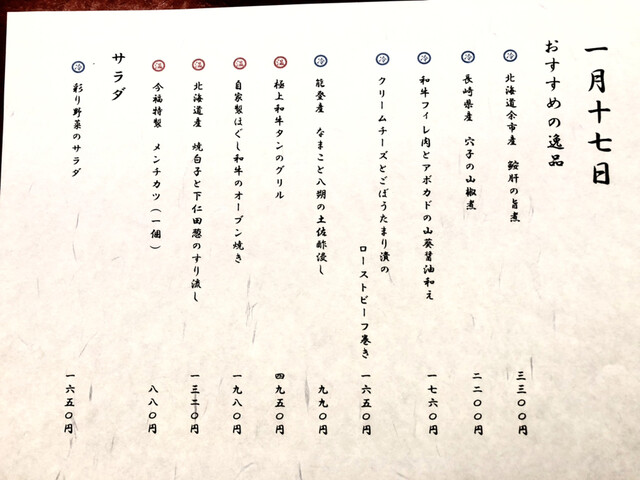 一月十七日
おすすめの逸品
冷 北海道余市産 鮟肝の旨煮 三三〇〇円
冷 長崎県産 穴子の山椒煮 二二〇〇円
冷 和牛フィレ肉とアボカドの山葵醤油和え 一七六〇円
冷 クリームチーズとごぼうたまり漬の
ローストビーフ巻き 一六五〇円
冷 能登産 なまこと八朔の土佐酢浸し 九九〇円
温 極上和牛タンのグリル 四九五〇円
温 自家製ほぐし和牛のオーブン焼き 一九八〇円
温 北海道産 焼白子と下仁田葱のすり流し 一三二〇円
温 今福特製 メンチカツ(一個) 八八〇円
サラダ
冷 彩り野菜のサラダ 一六五〇円